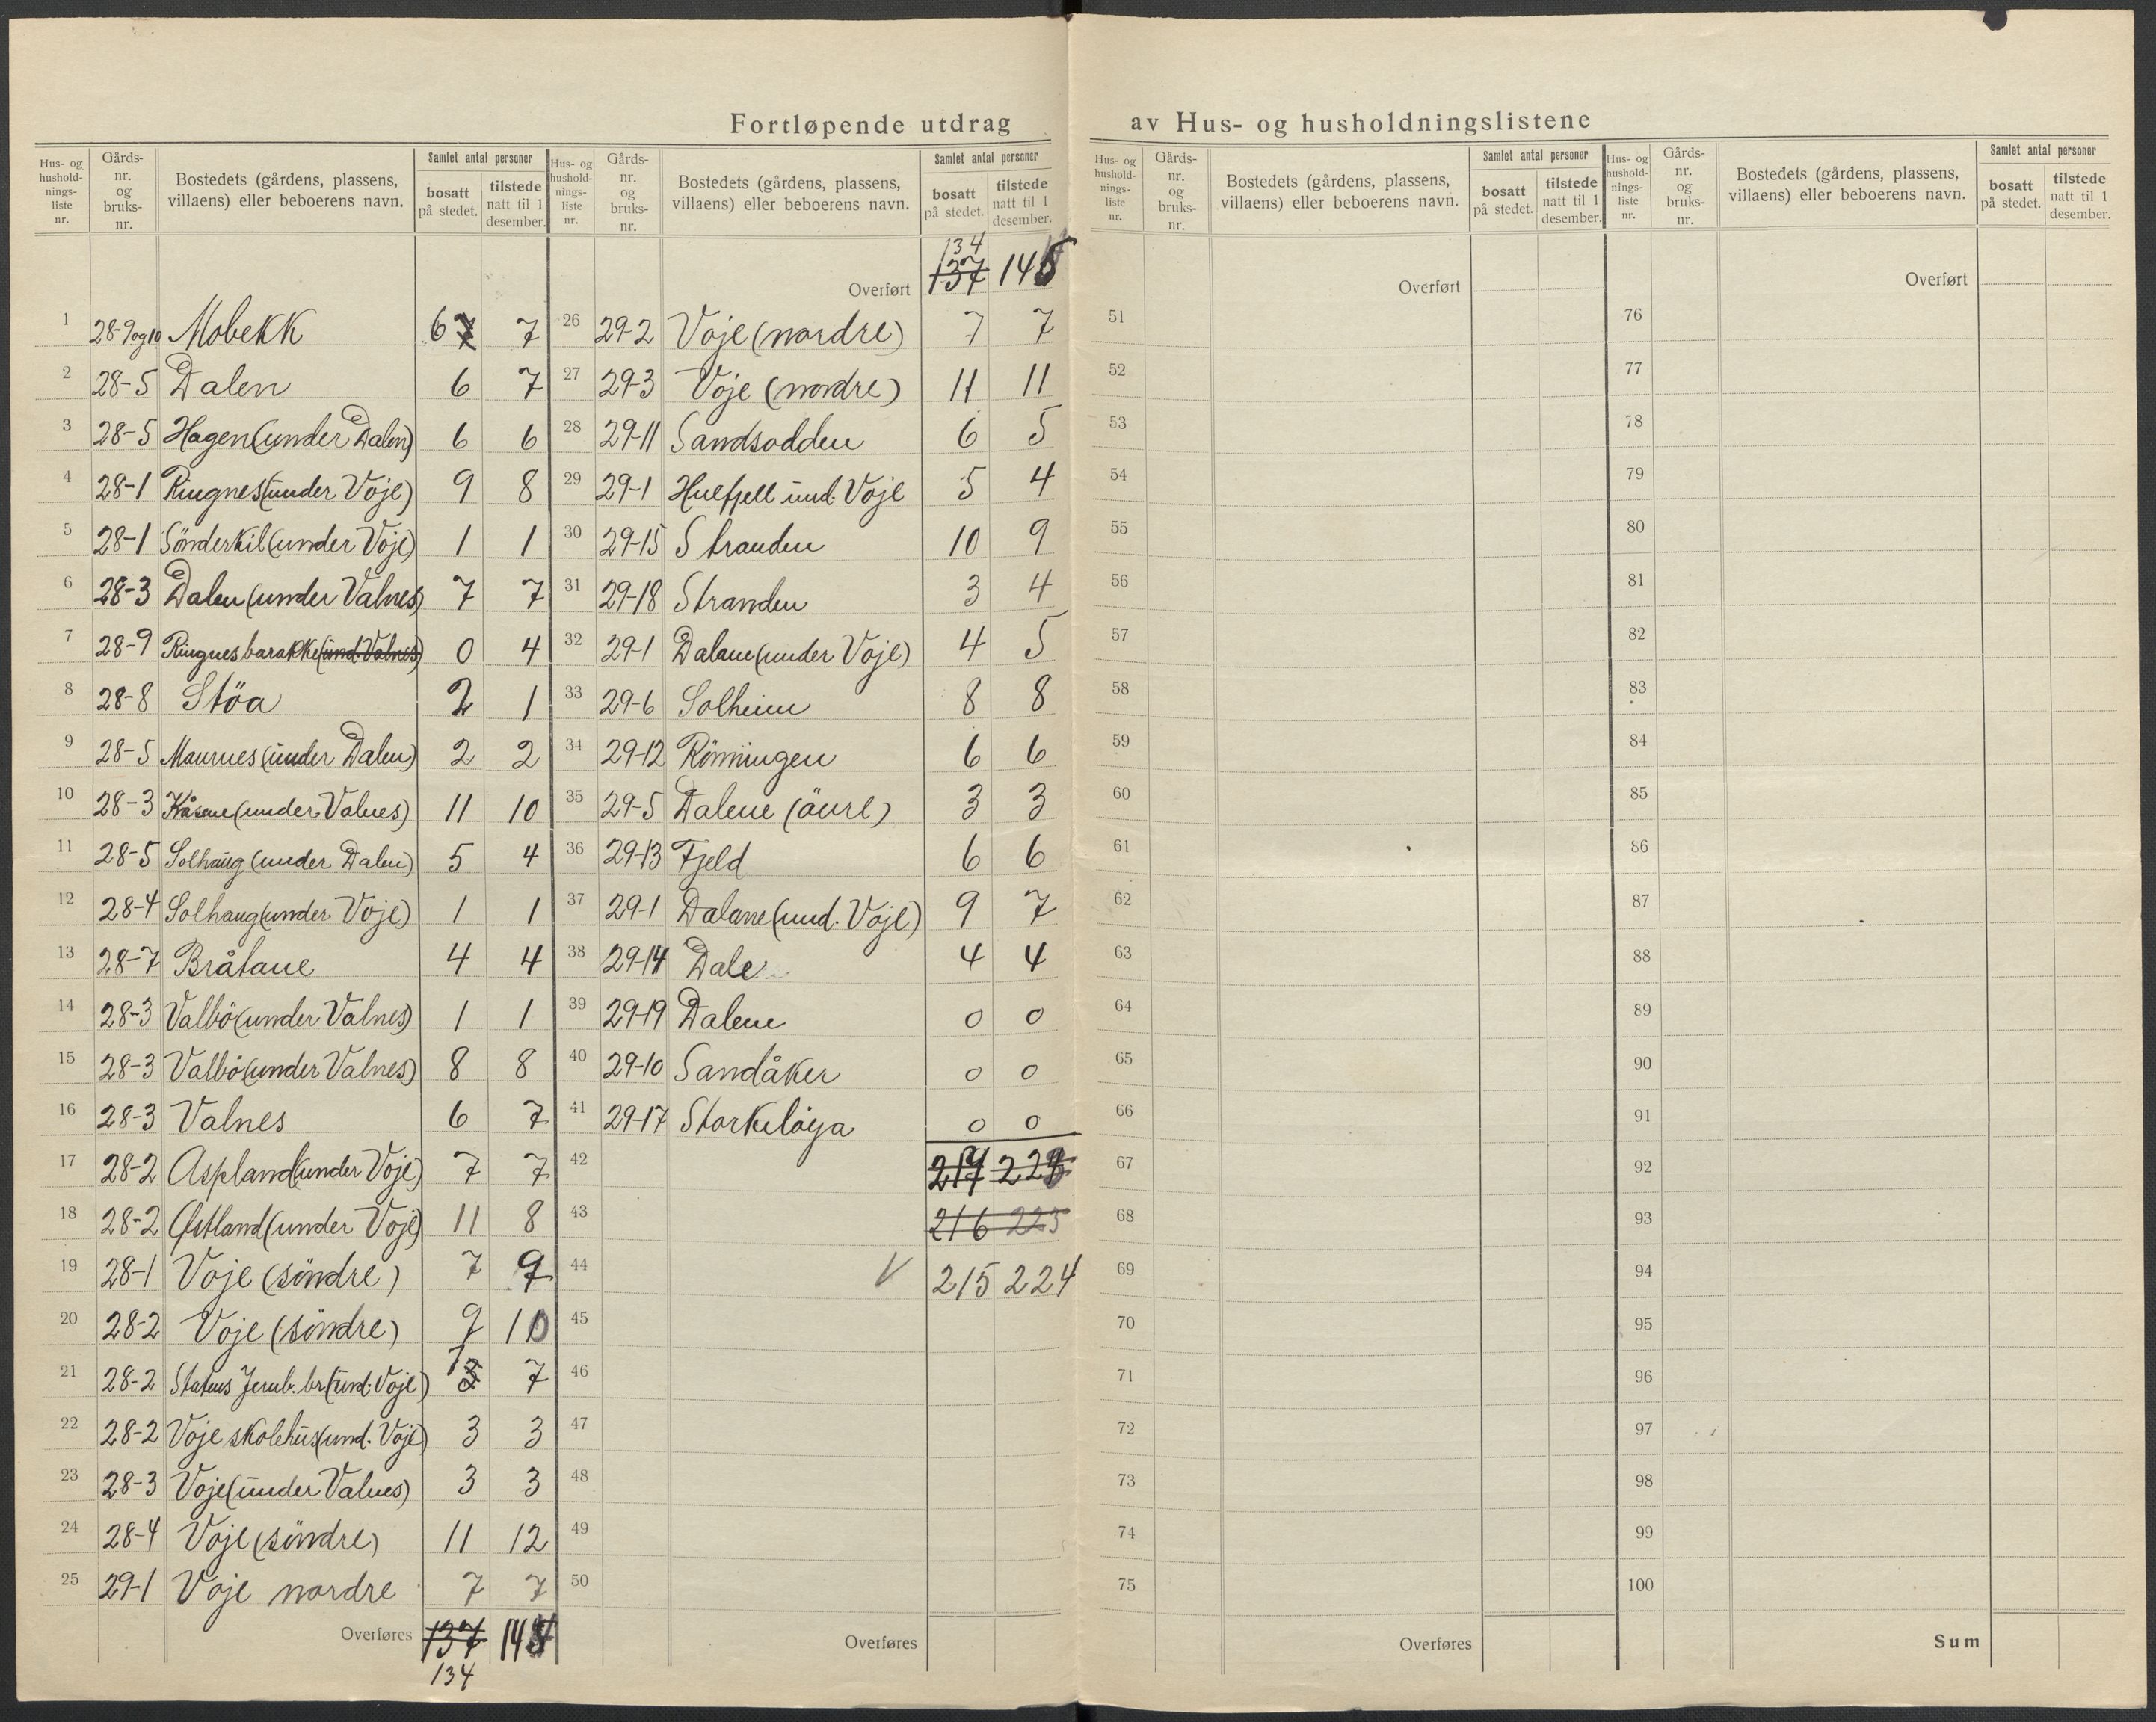 Fortløpende utdrag av Hus- og husholdningslistene
Hus- og husholdnings- liste nr. | Gårds- nr. og bruks- nr. | Bostedets (gårdens, plassens, villaens) eller beboerens navn. | Samlet antal personer | bosatt på stedet. | tilstede natt til 1 desember.
1 28-9og10 Mobekk 6 7 7
2 28-5 Dalen 6 7
3 28-5 Hagen (under Dalen) 6 6
4 28-1 Ringnes (under Voje) 9 8
5 28-1 Sönderkil (under Voje) 1 1
6 28-3 Dalen (under Valnes) 7 7
7 28-9 Ringnes barakke (und. Valnes) 0 4
8 28-8 Stöa 2 1
9 28-5 Maurnes (under Dalen) 2 2
10 28-3 Kåsene (under Valnes) 11 10
11 28-5 Solhaug (under Dalen) 5 4
12 28-4 Solhaug (under Voje) 1 1
13 28-7 Bråtane 4 4
14 28-3 Valbö (under Valnes) 1 1
15 28-3 Valbö (under Valnes) 8 8
16 28-3 Valnes 6 7
17 28-2 Aspland (under Voje) 7 7
18 28-2 Østland (under Voje) 11 8
19 28-1 Voje (söndre) 7 9
20 28-2 Voje (söndre) 9 10
21 28-2 Statens Jernb. br. (und. Voje) 7
22 28-2 Voje skolehus (und. Voje) 3 3
23 28-3 Voje (under Valnes) 3 3
24 28-4 Voje (söndre) 11 12
25 29-1 Voje nordre 7 7
Overføres 137
134
Hus- og husholdnings- liste nr. | Gårds- nr. og bruks- nr. | Bostedets (gårdens, plassens, villaens) eller beboerens navn. | Samlet antal personer | bosatt på stedet. | tilstede natt til 1 desember.
134
Overført 137 145
26 29-2 Voje (nordre) 7 7
27 29-3 Voje (nordre) 11 11
28 29-11 Sandsodden 6 5
29 29-1 Huefjell und. Voje 5 4
30 29-15 Stranden 10 9
31 29-18 Stranden 3 4
32 29-1 Dalane (under Voje) 4 5
33 29-6 Solheim 8 8
34 29-12 Rönningen 6 6
35 29-5 Dalene (övre) 3 3
36 29-13 Fjeld 6 6
37 29-1 Dalane (und. Voje) 9 7
38 29-14 Dale 4 4
39 29-19 Dalene 0 0
40 29-10 Sandåker 0 0
41 29-17 Storkiløya 0 0
42
43 216 225
44 V 215 224
45
46
47
48
49
50
Overføres
Hus- og husholdnings- liste nr. | Gårds- nr. og bruks- nr. | Bostedets (gårdens, plassens, villaens) eller beboerens navn. | Samlet antal personer | bosatt på stedet. | tilstede natt til 1 desember.
Overført
51
52
53
54
55
56
57
58
59
60
61
62
63
64
65
66
67
68
69
70
71
72
73
74
75
Overføres
Hus- og husholdnings- liste nr. | Gårds- nr. og bruks- nr. | Bostedets (gårdens, plassens, villaens) eller beboerens navn. | Samlet antal personer | bosatt på stedet. | tilstede natt til 1 desember.
Overført
76
77
78
79
80
81
82
83
84
85
86
87
88
89
90
91
92
93
94
95
96
97
98
99
100
Sum